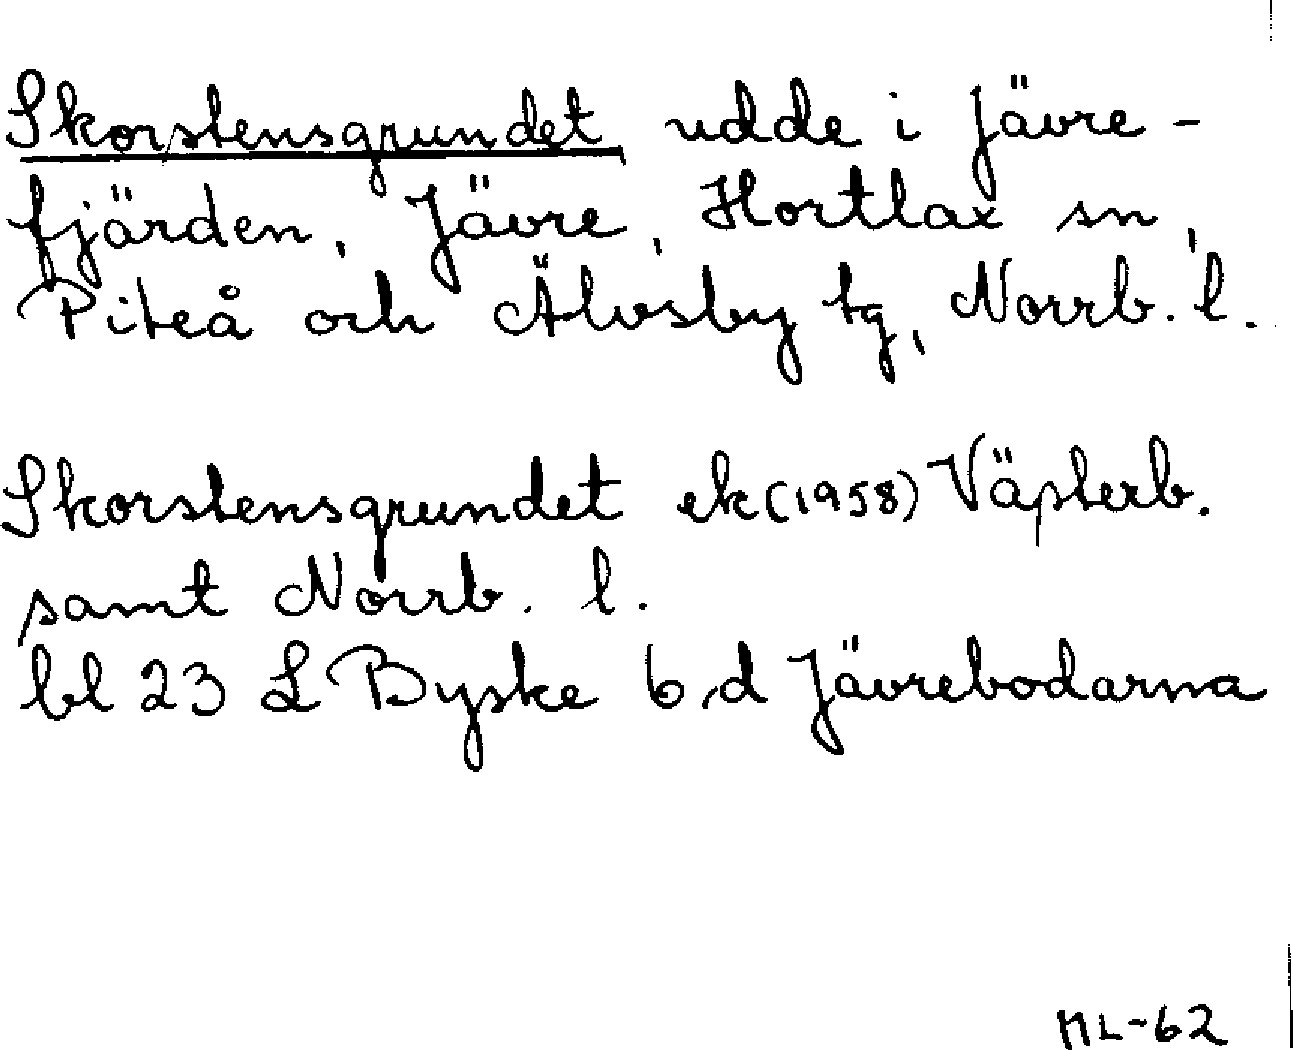 Skorstensgrundet, udde i Jävre-
fjärden, Jävre, Hortlax sn,
Piteå och Älvsby tg, Norrb. l.
Skorstensgrundet ek (1958) Västerb.
samt Norrb. l.
bl 23 L Byske 6,d Jävrebodarna
ML-62